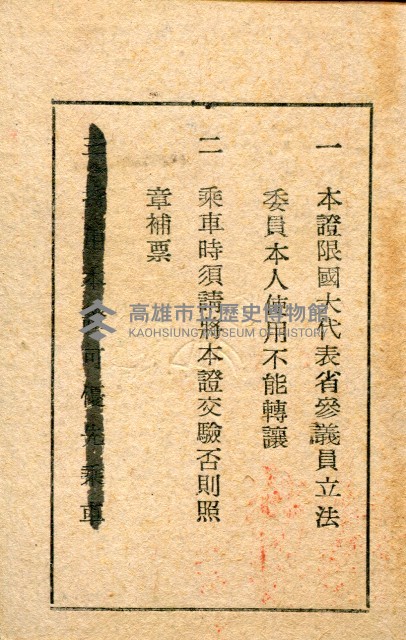 一 本證限國大代表省參議員立法
委員本人使用不能轉讓
二 乘車時須請將本證交驗否則照
章補票
三 可優先乘車
高雄市立歷史博物館
KAOHSIUNG MUSEUM OF HISTORY